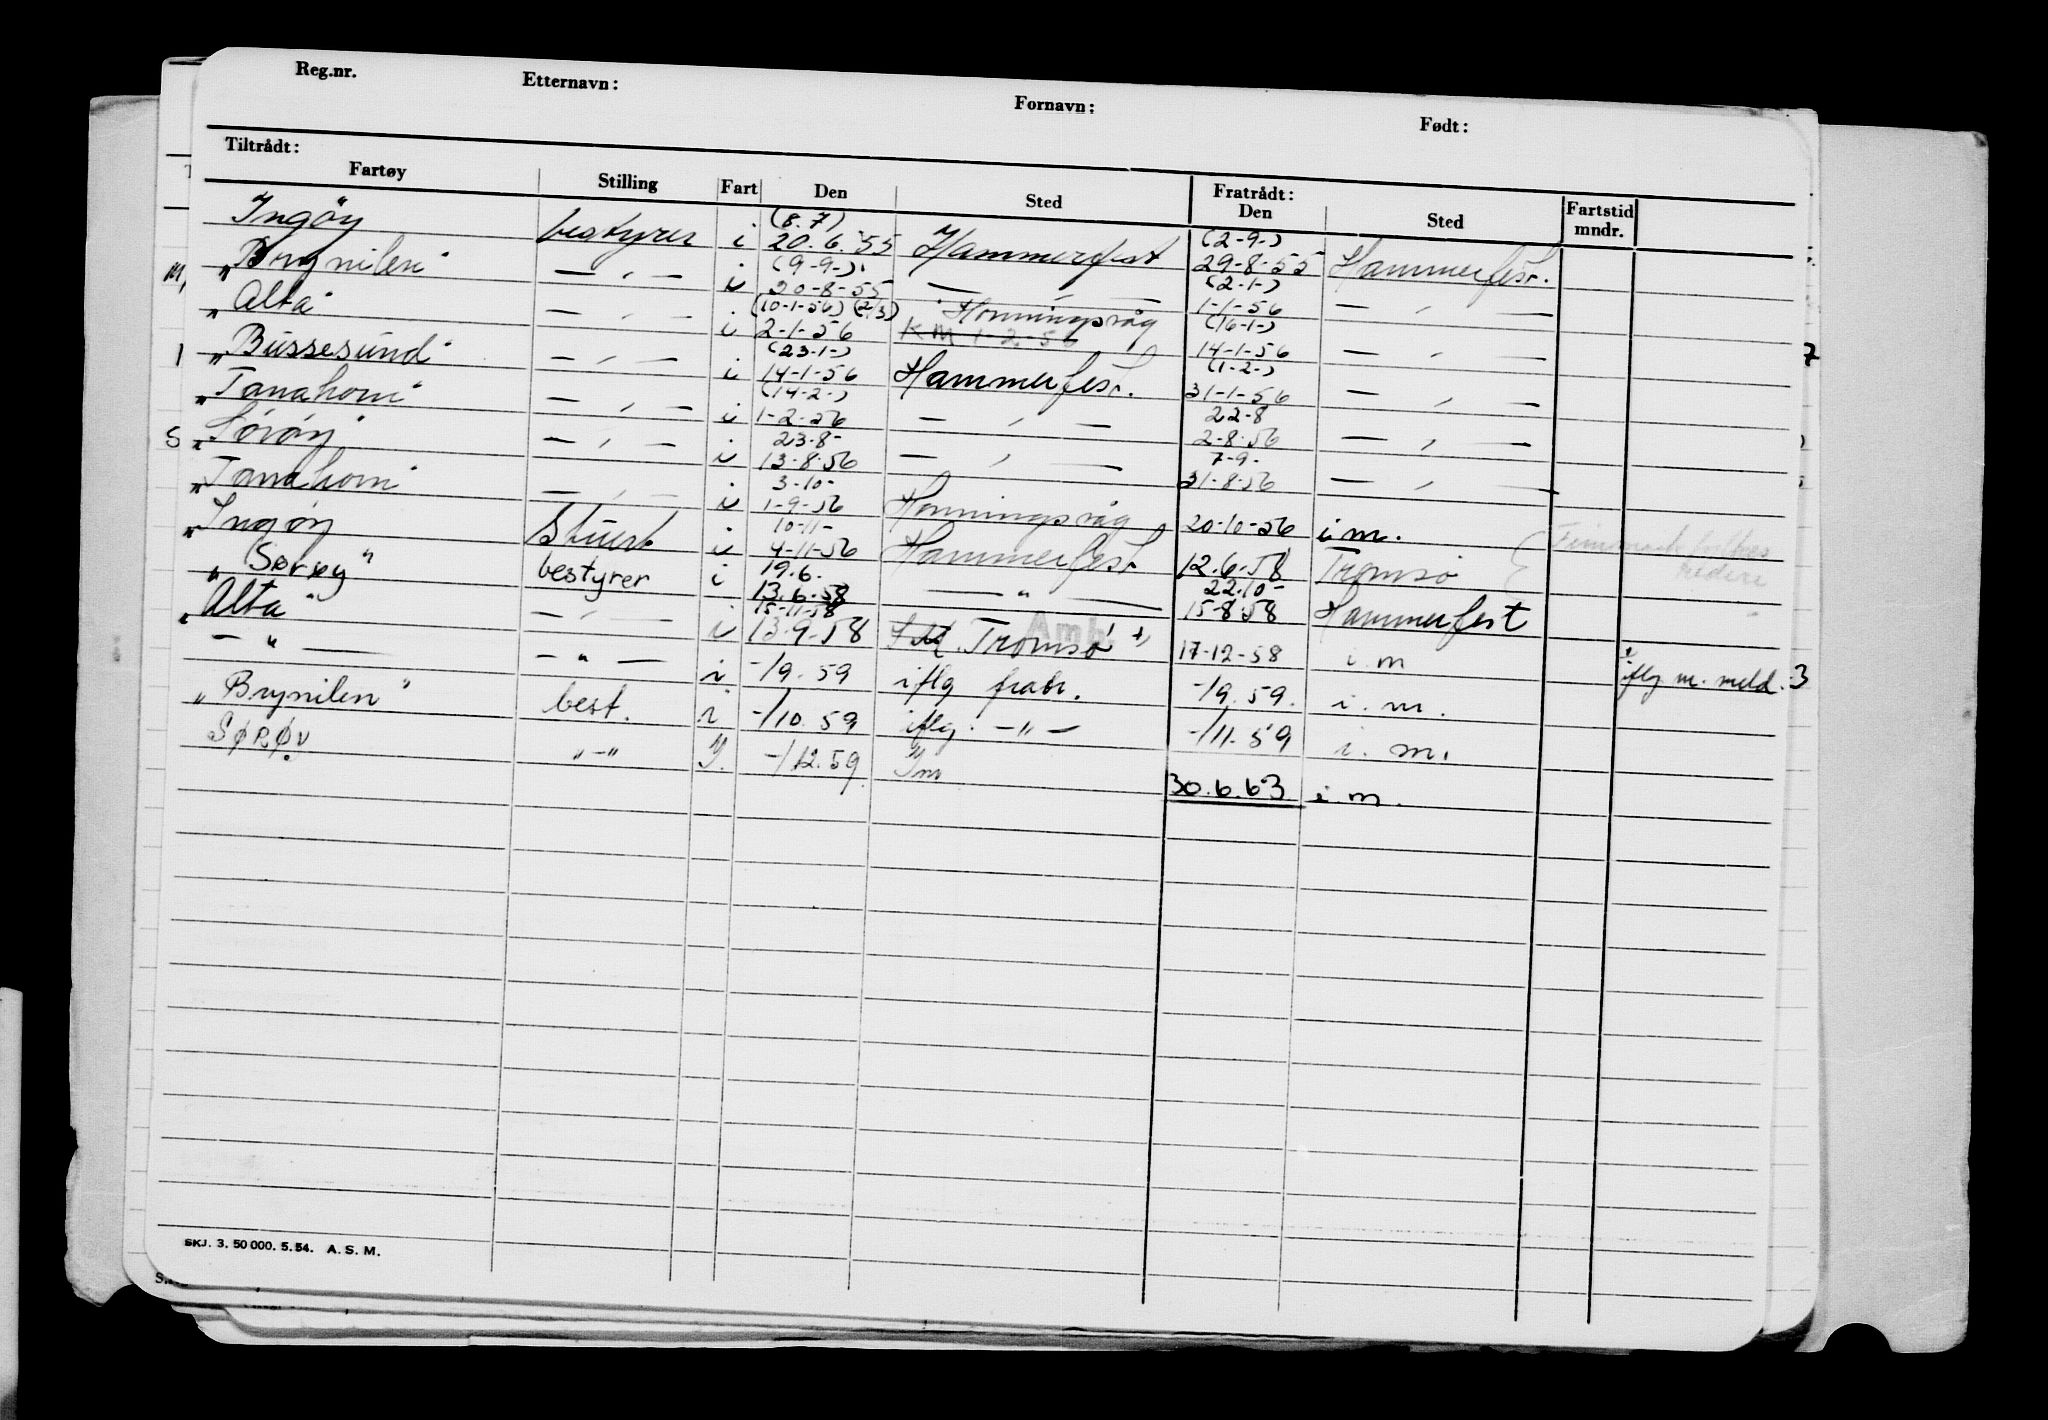 Reg.nr. Etternavn: Fornavn: Født:
Tiltrådt: Fratrådt:
Fartøy Stilling Fart Den Sted Den Sted Fartstid mndr.
(8.7) (2-9-)
Ingöy bestyrer i 20.6.55 Hammerfest 29-8-55 Hammerfest.
(9-9-) (2-1-)
"Brynilen" — " — i 20-8-55 — " — 1-1-56 — " —
(10-1-56) (2/3) (16-1-)
"Alta" — " — i 2-1-56 Honningsvåg KM 1-2-56 14-1-56 — " —
(23-1-) (1-2-)
"Bussesund" — " — i 14-1-56 Hammerfest. 31-1-56 — " —
(14-2-) 22-8
"Tanahorn" — " — i 1-2-56 — " — 2-8-56 — " —
23-8- 7-9-
"Söröy" — " — i 13-8-56 — " — 31-8-56 — " —
3-10-
"Tanahorn" — " — i 1-9-56 Honningsvåg 20-10-56 i m.
10-11-
"Ingöy Stuert i 4-11-56 Hammerfest 12.6.58 Tromsø
19.6. 22.10-
"Sørøy" bestyrer i 13.6.58 — " — 15-8-58 Hammerfest
15-11-58
"Alta" — " — i 13-9-58 Tromsö 17-12-58 i m iflg m. meld.
— " — — " — i -/9.59 iflg frakr. -/9.59. i. m.
"Brynilen" best. i -/10.59 iflg. -"- -/11.59 i. m.
SØRØY "-" I. -/12.59 Im 30.6.63 i m.
SKJ. 3. 50 000. 5. 54. A. S. M.